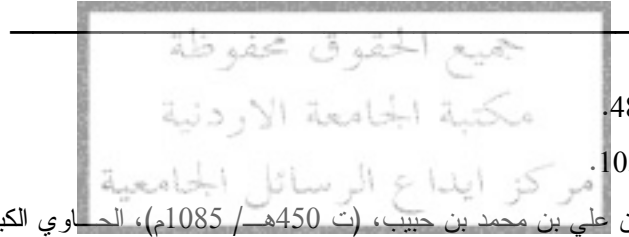 جميع الحقوق محفوظة
مكتبة الجامعة الاردنية
48.
مركز ايداع الرسائل الجامعية
10.
علي بن محمد بن حبيب، (ت 450هـ/ 1085م)، الحـاوي